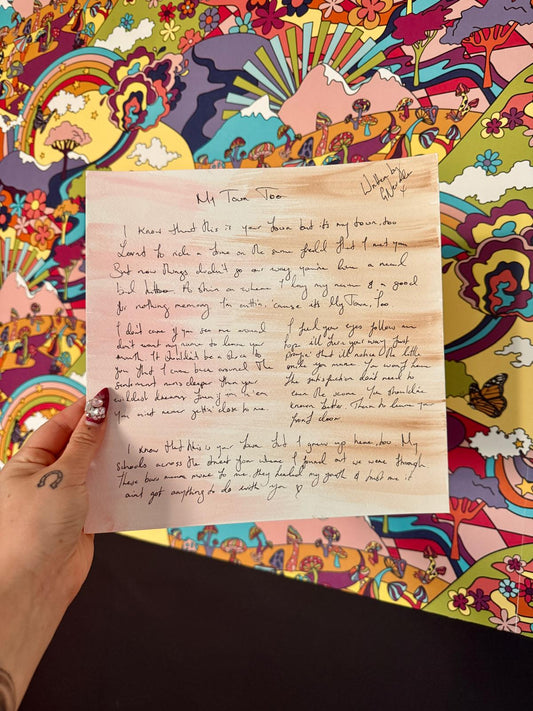 My Town Too
Written by
I know that this is your town but it's my town too
Learnt to ride a horse on the same field that I met you
But now things didn't go our way, you've been a
bad on where I lay my name & a good
for nothing memory I'm cuttin, 'cause it's My Town, Too
I don't care if you see me around
don't want any more to learn you
It shouldn't be a shock to
you that I came back around The
sentiment runs deeper than you
wildest dreams
You aint never gettin close to me
I feel your eyes follow me
I'll turn your way Just
prayin' that I'll notice the little
smile you make You won't have
the satisfaction don't need to
cause the scene You should've
known better Than to leave your
front door
I know that this is your home but I grew up here, too My
school's across the street from where I found out we were through
These bars mean more to me, they healed my youth & trust me it
aint got anything to do with you